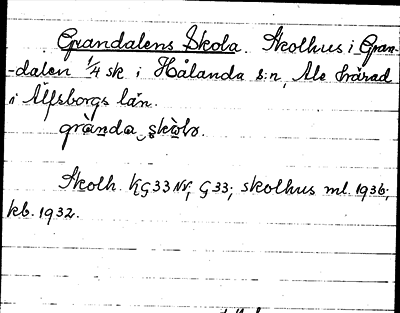 Grandalens Skola. Skolhus i Gran-
-dalen 1/4 sk i Hålanda s:n, Ale härad
i Älfsborgs län.
grànda skòlv.
Skolh. KG33NV, G33; skolhus ml. 1936;
kb. 1932.